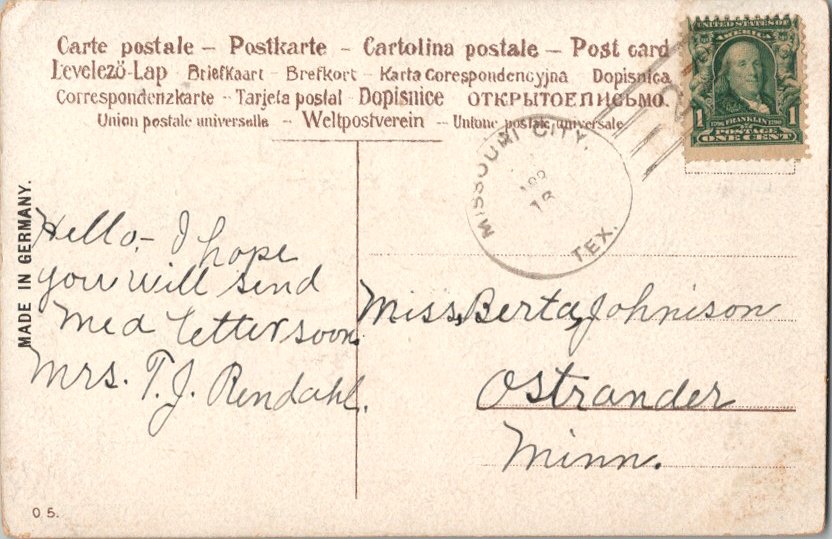 Carte postale – Postkarte – Cartolina postale – Post card
Levelező-Lap - Briefkaart - Brefkort - Karta Corespondencyjna Dopisnica
Correspondenzkarte - Tarjeta postal Dopisnice ОТКРЫТОЕПИСЬМО.
Union postale universelle – Weltpostverein – Unione postale universale
UNITED STATES OF
AMERICA
1 FRANKLIN 1
POSTAGE
ONE CENT
MISSOURI CITY,
APR
18
TEX.
MADE IN GERMANY.
Hello,- I hope
you will send
me a letter soon.
Mrs. T. J. Rendahl.
Miss, Berta, Johnison
Ostrander
Minn.
05.